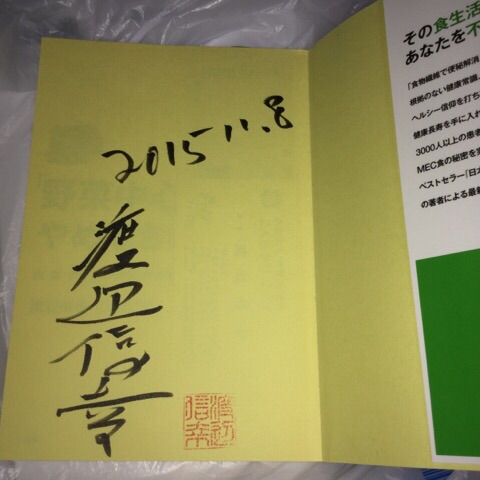 2015 11.8
渡辺信幸
渡辺
信幸
その食生活
あなたを不
「食物繊維で便秘解消
根拠のない健康常識、
ヘルシー信仰を打ち
健康長寿を手に入れ
3000人以上の患者
MEC食の秘密を
ベストセラー『日
の著者による最